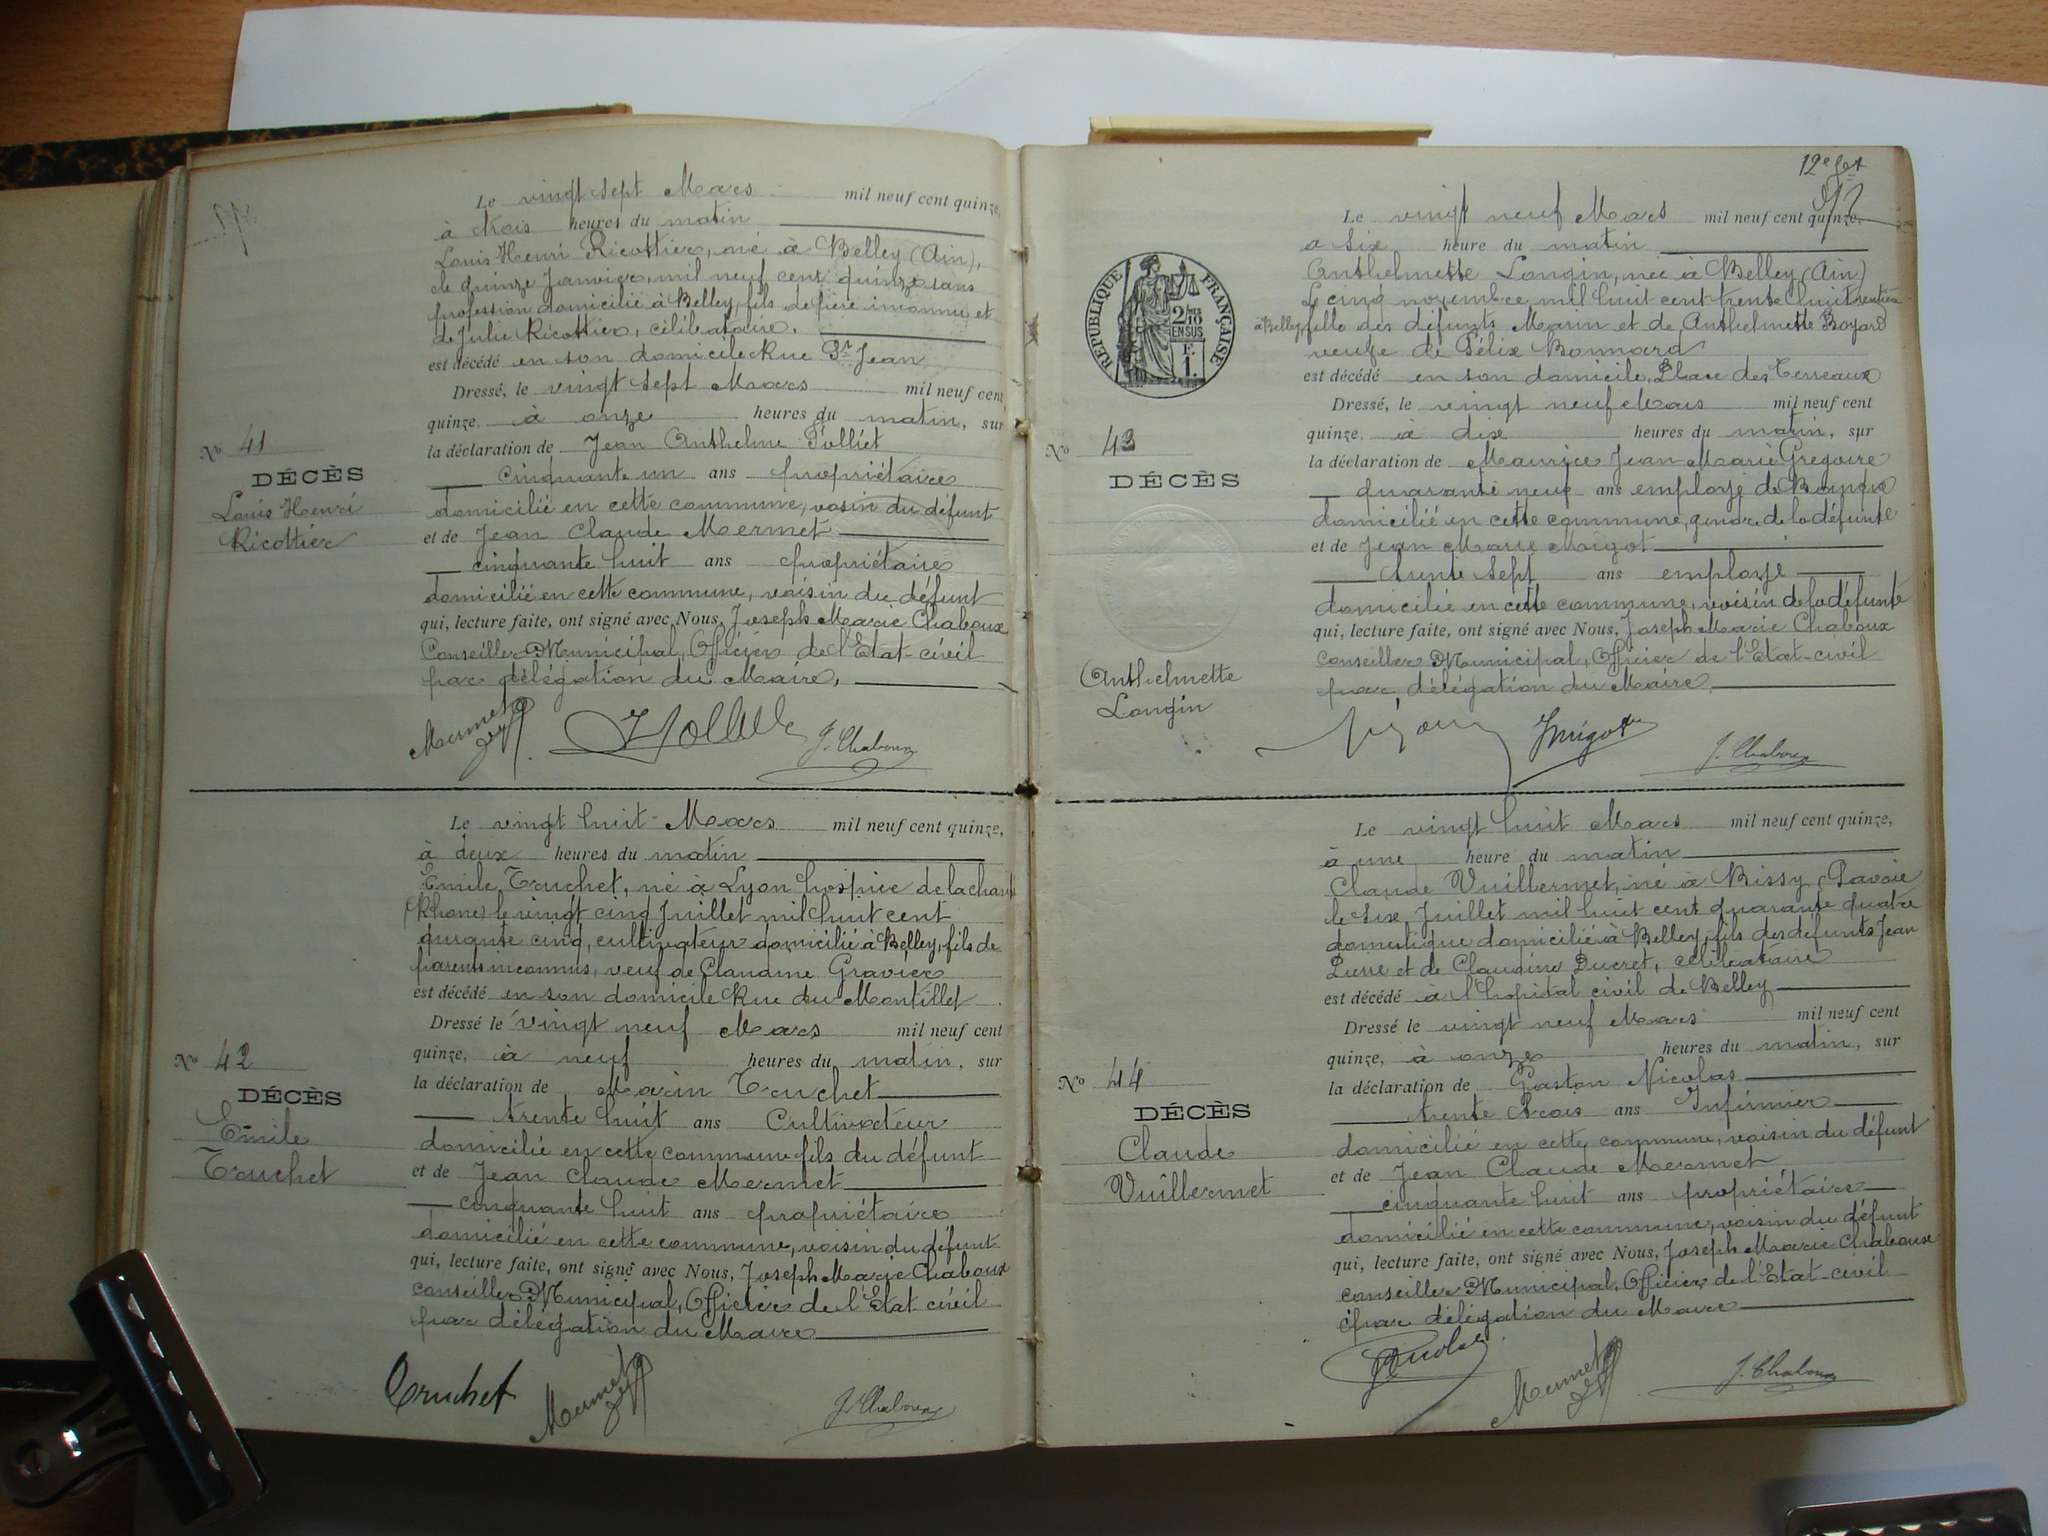 Le vingt sept Mars mil neuf cent quinze,
à trois heures du matin
Louis Henri Ricottier, né à Belley (Ain),
le quinze Janvier mil neuf cent quinze sans
profession domicilié à Belley, fils de père inconnu et
de Julie Ricottier, célibataire,
est décédé en son domicile Rue St Jean
Dressé, le vingt sept Mars mil neuf cent
quinze, à onze heures du matin, sur
la déclaration de Jean Anthelme
cinquante un ans propriétaire
domicilié en cette commune, voisin du défunt
et de Jean Claude Mermet
cinquante huit ans propriétaire
domicilié en cette commune, voisin du défunt
qui, lecture faite, ont signé avec Nous, Joseph Marie Chaboux
Conseiller Municipal, Officier de l'Etat-civil
par délégation du Maire,
No 41
DÉCÈS
Louis Henri
Ricottier
Mermet
J. Chaboux
Le vingt huit Mars mil neuf cent quinze,
à deux heures du matin
Emile Truchet, né à Lyon hospice de la charité
(Rhone) le vingt cinq Juillet mil huit cent
quarante cinq, cultivateur domicilié à Belley, fils de
parents inconnus, veuf de Claudine Gravier
est décédé en son domicile Rue du Montillet
Dressé le vingt neuf Mars mil neuf cent
quinze, à neuf heures du matin, sur
la déclaration de Marin Truchet
trente huit ans Cultivateur
domicilié en cette commune fils du défunt
et de Jean Claude Mermet
cinquante huit ans propriétaire
domicilié en cette commune, voisin du défunt
qui, lecture faite, ont signé avec Nous, Joseph Marie Chaboux
conseiller Municipal, Officier de l'Etat-civil
par délégation du Maire
No 42
DÉCÈS
Emile
Truchet
Truchet
Mermet
J. Chaboux
12e
Le vingt neuf Mars mil neuf cent quinze,
à six heure du matin
Anthelmette Longin, née à Belley (Ain)
Le cinq novembre mil huit cent trente huit rentière
à Belley, fille des défunts Marin et de Anthelmette Boyard
veuve de Félix Bonnard
est décédé en son domicile, Place des Terreaux
Dressé, le vingt neuf Mars mil neuf cent
quinze, à dix heures du matin, sur
la déclaration de Maurice Jean Marie Gregoire
quarante neuf ans employé de Banque
domicilié en cette commune, gendre de la défunte
et de Jean Marie Migot
trente sept ans employé
domicilié en cette commune, voisin de la défunte
qui, lecture faite, ont signé avec Nous, Joseph Marie Chaboux
conseiller Municipal, Officier de l'Etat-civil
par délégation du Maire,
RÉPUBLIQUE FRANÇAISE
2/10
EN SUS
F.
1.
No 43
DÉCÈS
Anthelmette
Longin
Jmigot
J. Chaboux
Le vingt huit Mars mil neuf cent quinze,
à une heure du matin
Claude Vuillermet, né à Bissy (Savoie
le Six Juillet mil huit cent quarante quatre
domestique domicilié à Belley, fils des défunts Jean
Pierre et de Claudine Ducret, célibataire
est décédé à l'hopital civil de Belley
Dressé le vingt neuf Mars mil neuf cent
quinze, à onze heures du matin, sur
la déclaration de Gaston Nicolas
trente trois ans Infirmier
domicilié en cette commune, voisin du défunt
et de Jean Claude Mermet
cinquante huit ans propriétaire
domicilié en cette commune, voisin du défunt
qui, lecture faite, ont signé avec Nous, Joseph Marie Chaboux
conseiller Municipal, Officier de l'Etat-civil
par délégation du Maire
No 44
DÉCÈS
Claude
Vuillermet
Nicolas
Mermet
J. Chaboux